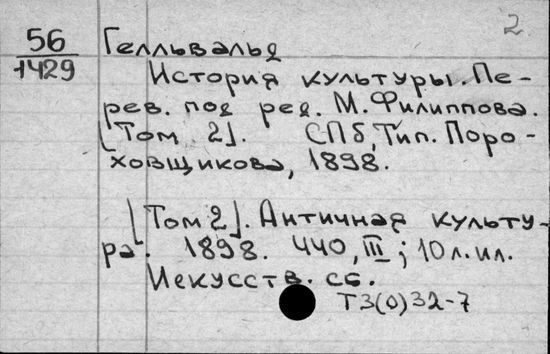 2
56
1429
Гелльвальд
История культуры. Пе-
рев. под ред. М. Филиппова.
[Том 2]. СПб, Тип. Поро-
ховщикова, 1898.
[Том 2]. Античная культу-
ра. 1898. 440, III; 10 л. ил.
Искусств. сб.
Т3(0)32-7